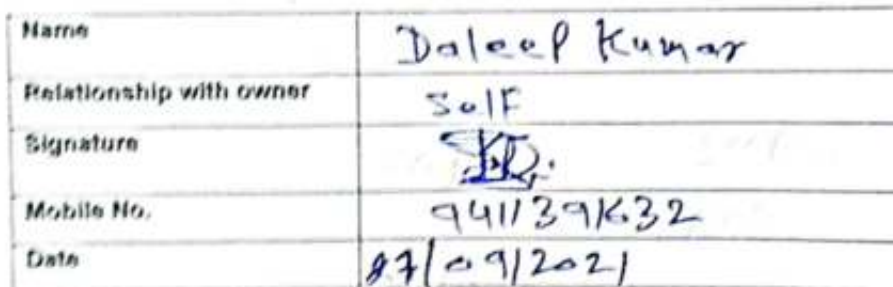 Name Daleep Kumar
Relationship with owner Self
Signature
Mobile No. 9411391632
Date 27/09/2021